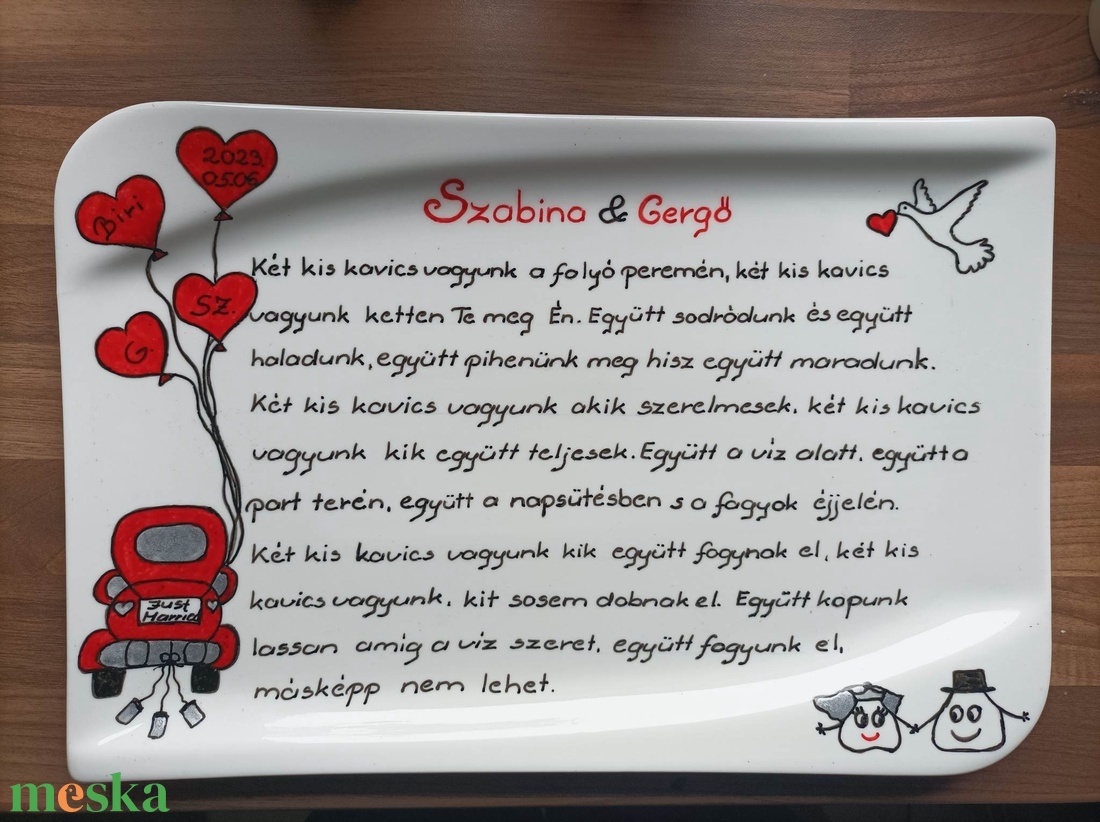 2023.
05.06.
Biri
SZ.
G.
Szabina & Gergő
Két kis kavics vagyunk a folyó peremén, két kis kavics
vagyunk ketten Te meg Én. Együtt sodródunk és együtt
haladunk, együtt pihenünk meg hisz együtt maradunk.
Két kis kavics vagyunk akik szerelmesek, két kis kavics
vagyunk kik együtt teljesek. Együtt a víz alatt, együtt a
part terén, együtt a napsütésben s a fagyok éjjelén.
Két kis kavics vagyunk kik együtt fogynak el, két kis
kavics vagyunk, kit sosem dobnak el. Együtt kopunk
lassan amíg a víz szeret, együtt fogyunk el,
másképp nem lehet.
Just
Married
meska